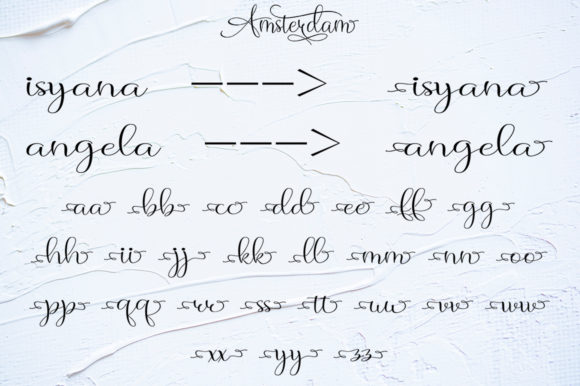 Amsterdam
isyana ---> isyana
angela ---> angela
aa bb cc dd ee ff gg
hh ii jj kk ll mm nn oo
pp qq rr ss tt uu vv ww
xx yy zz